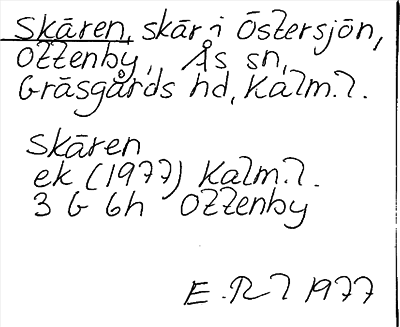 Skären, skär i Östersjön,
Ottenby, Ås sn,
Gräsgårds hd, Kalm. l.
Skären
ek (1977) Kalm. l.
3 G 6h Ottenby
E. R l 1977